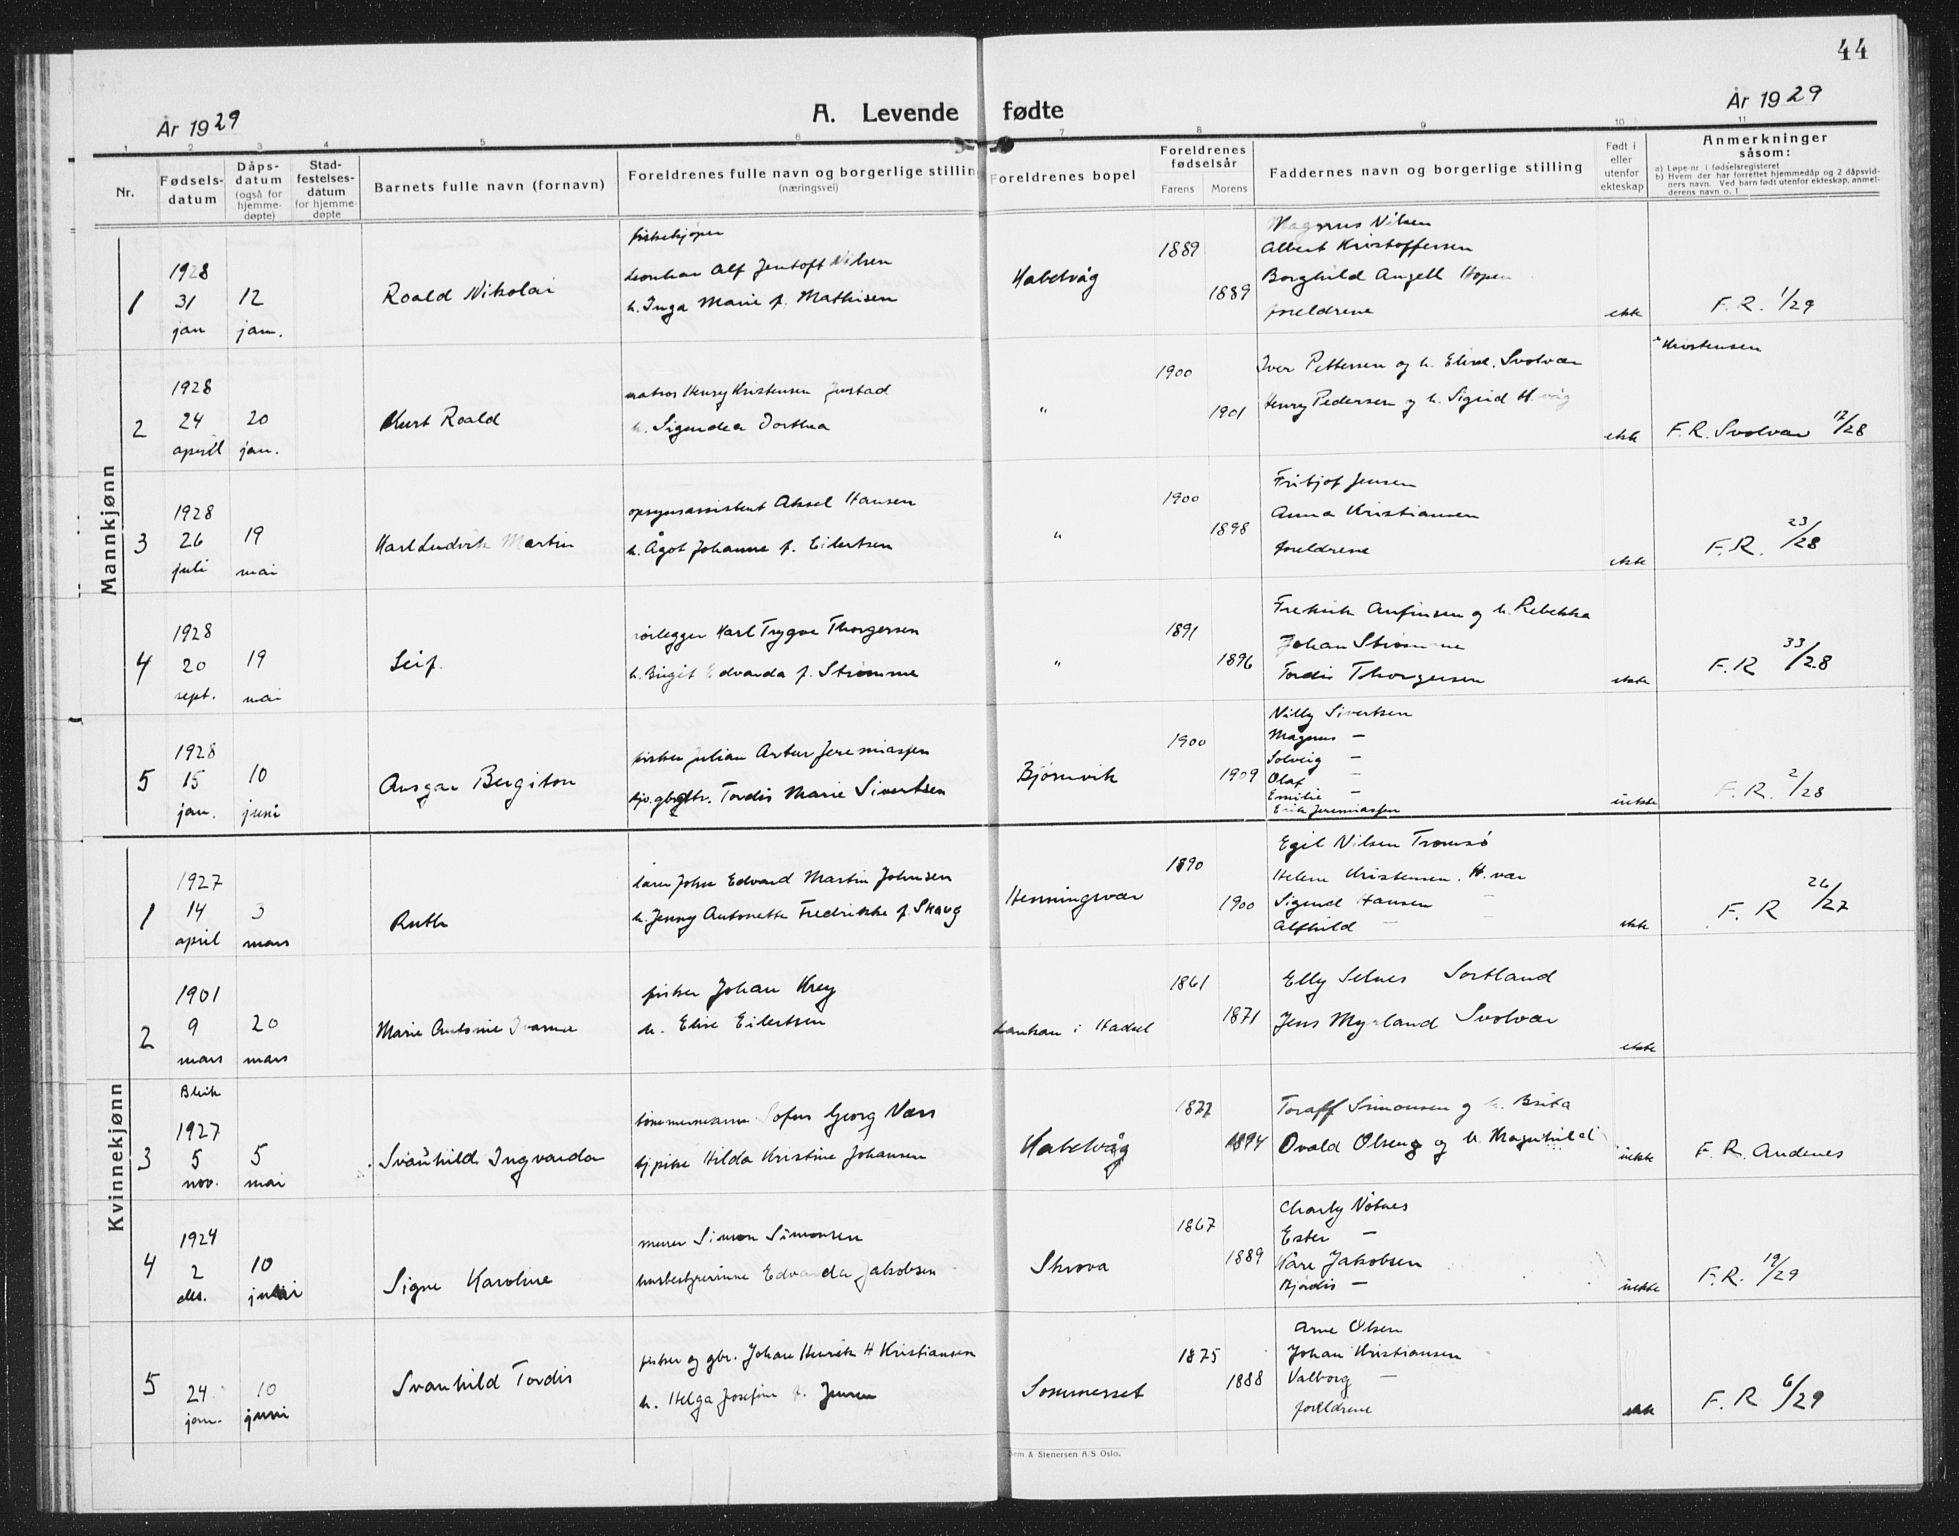 44
År 1929
A. Levende fødte
År 1929
1 2 3 4 5 6 7 8 9 10 11
Nr.
Fødsels-datum
Dåps-datum (også for hjemme-døpte)
Stad-festelses-datum for hjemme-døpte
Barnets fulle navn (fornavn)
Foreldrenes fulle navn og borgerlige stilling
(næringsvei)
Foreldrenes bopel
Foreldrenes fødselsår
Farens Morens
Faddernes navn og borgerlige stilling
Født i eller utenfor ekteskap
Anmerkninger såsom:
a) Løpe-nr i fødselsregisteret
b) Hvem der har forrettet hjemmedåp og 2 dåpsvid-
ners navn. Ved barn født utenfor ekteskap, anmel-
derens navn o. l
Mannkjønn
1
1928
31
jan
12
jan.
Roald Nikolai
fiskekjøper
Alf Jentoft Nilsen
h. Inga Marie f. Mathisen
Kabelvåg
1889
1889
Magnus Nilsen
Albert Kristoffersen
Borghild Angell Hopen
foreldrene
ekte
F. R. 1/29
2
1928
24
april
20
jan.
Kurt Roald
matros Henry Kristensen Justad
h. Dorthea
"
1900
1901
Iver Pettersen og h. Elise. Svolvær
Henry Pedersen og h. Sigrid
ekte
Kristensen
F. R. Svolvær 17/28
3
1928
26
juli
19
mai
Karl Ludvik Martin
opsynsassistent Aksel Hansen
h. Ågot Johanne f. Eilertsen
"
1900
1898
Fritjof Jensen
Anna Kristiansen
foreldrene
ekte
F. R. 23/28
4
1928
20
sept.
19
mai
Leif.
rørlegger Karl Trygve Thorgersen
h. Birgit Edvarda f. Strømme
"
1891
1896
Fredrik Anfinsen og h. Rebekka
Johan Strømme
Tordis Thorgersen
ekte
F. R 33/28
5
1928
15
jan.
10
juni
Ansgar Bergiton
fisker Julian Artur Jeremiassen
Tordis Marie Sivertsen
Bjørnvik
1900
1909
Nilly Sivertsen
Magnus –
Solveig –
Olaf –
Emilie –
Erik Jeremiassen
uekte
F. R. 2/28
Kvinnekjønn
1
1927
14
april
3
mars
Ruth
lærer John Edvard Martin Johnsen
h. Jenny Antonette Fredrikke f. Skaug
Henningsvær
1890
1900
Egil Nilsen Tromsø
Helene Kristensen. H. vær
Sigurd Hansen –
Alfhild – –
ekte
F. R 26/27
2
1901
9
mars
20
mars
Marie Antonie
fisker Johan Krey
h. Elise Eilertsen
i Hadsel
1861
1871
Elly Selnes Sortland
Jens Myrland Svolvær
ekte
3
Bleik
1927
5
nov.
5
mai
Svanhild Ingvarda
tømmermann Sofus Georg Næss
pike Hilda Kristine Johansen
Kabelvåg
1877
1894
Toralf Simonsen og h. Brita
Ovald Olsen og h. Magnhild
uekte
F. R. Andenes
4
1924
2
des.
10
Signe Karoline
murer Simon Simonsen
husbestyrerinne Edvarda Jakobsen
Skrova
1867
1889
Charly Nøtnes
Ester –
Kåre Jakobsen
Bjørdis –
uekte
F. R. 19/29
5
24
jan.
10
juni
Svanhild Tordis
fisker og gbr. Johan Henrik H Kristiansen
h. Helga Josefine f. Jensen
Sommerset
1875
1888
Arne Olsen
Johan Kristiansen
Valborg –
foreldrene
ekte
F. R 6/29
& Stenersen A/S Oslo.